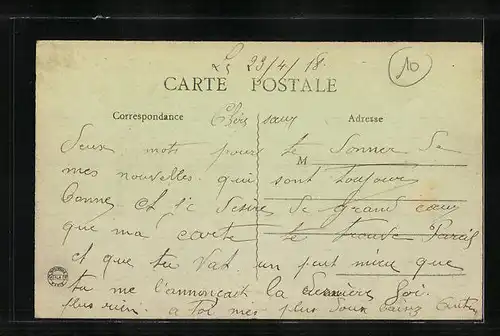 Le 23/4/18
10
CARTE POSTALE
Correspondance Chère sœur Adresse
M
Deux mots pour te donner de
mes nouvelles qui sont toujours
bonnes et je désire de grand cœur
que ma carte te trouve Pareil
et que tu vat un peut mieu que
tu me l'annonçait la dernière foi.
plus rien. a toi mes plus doux